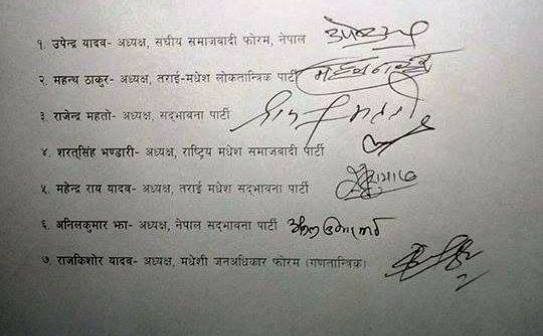 १. उपेन्द्र यादव- अध्यक्ष, संघीय समाजवादी फोरम, नेपाल
२. महन्थ ठाकुर- अध्यक्ष, तराई-मधेश लोकतान्त्रिक पार्टी
३ राजेन्द्र महतो- अध्यक्ष, सद्भावना पार्टी
४. शरत्सिंह भण्डारी- अध्यक्ष, राष्ट्रिय मधेश समाजवादी पार्टी
५. महेन्द्र राय यादव- अध्यक्ष, तराई मधेश सद्भावना पार्टी
६. अनिलकुमार झा- अध्यक्ष, नेपाल सद्भावना पार्टी
७. राजकिशोर यादव- अध्यक्ष, मधेशी जनअधिकार फोरम (गणतान्त्रिक)